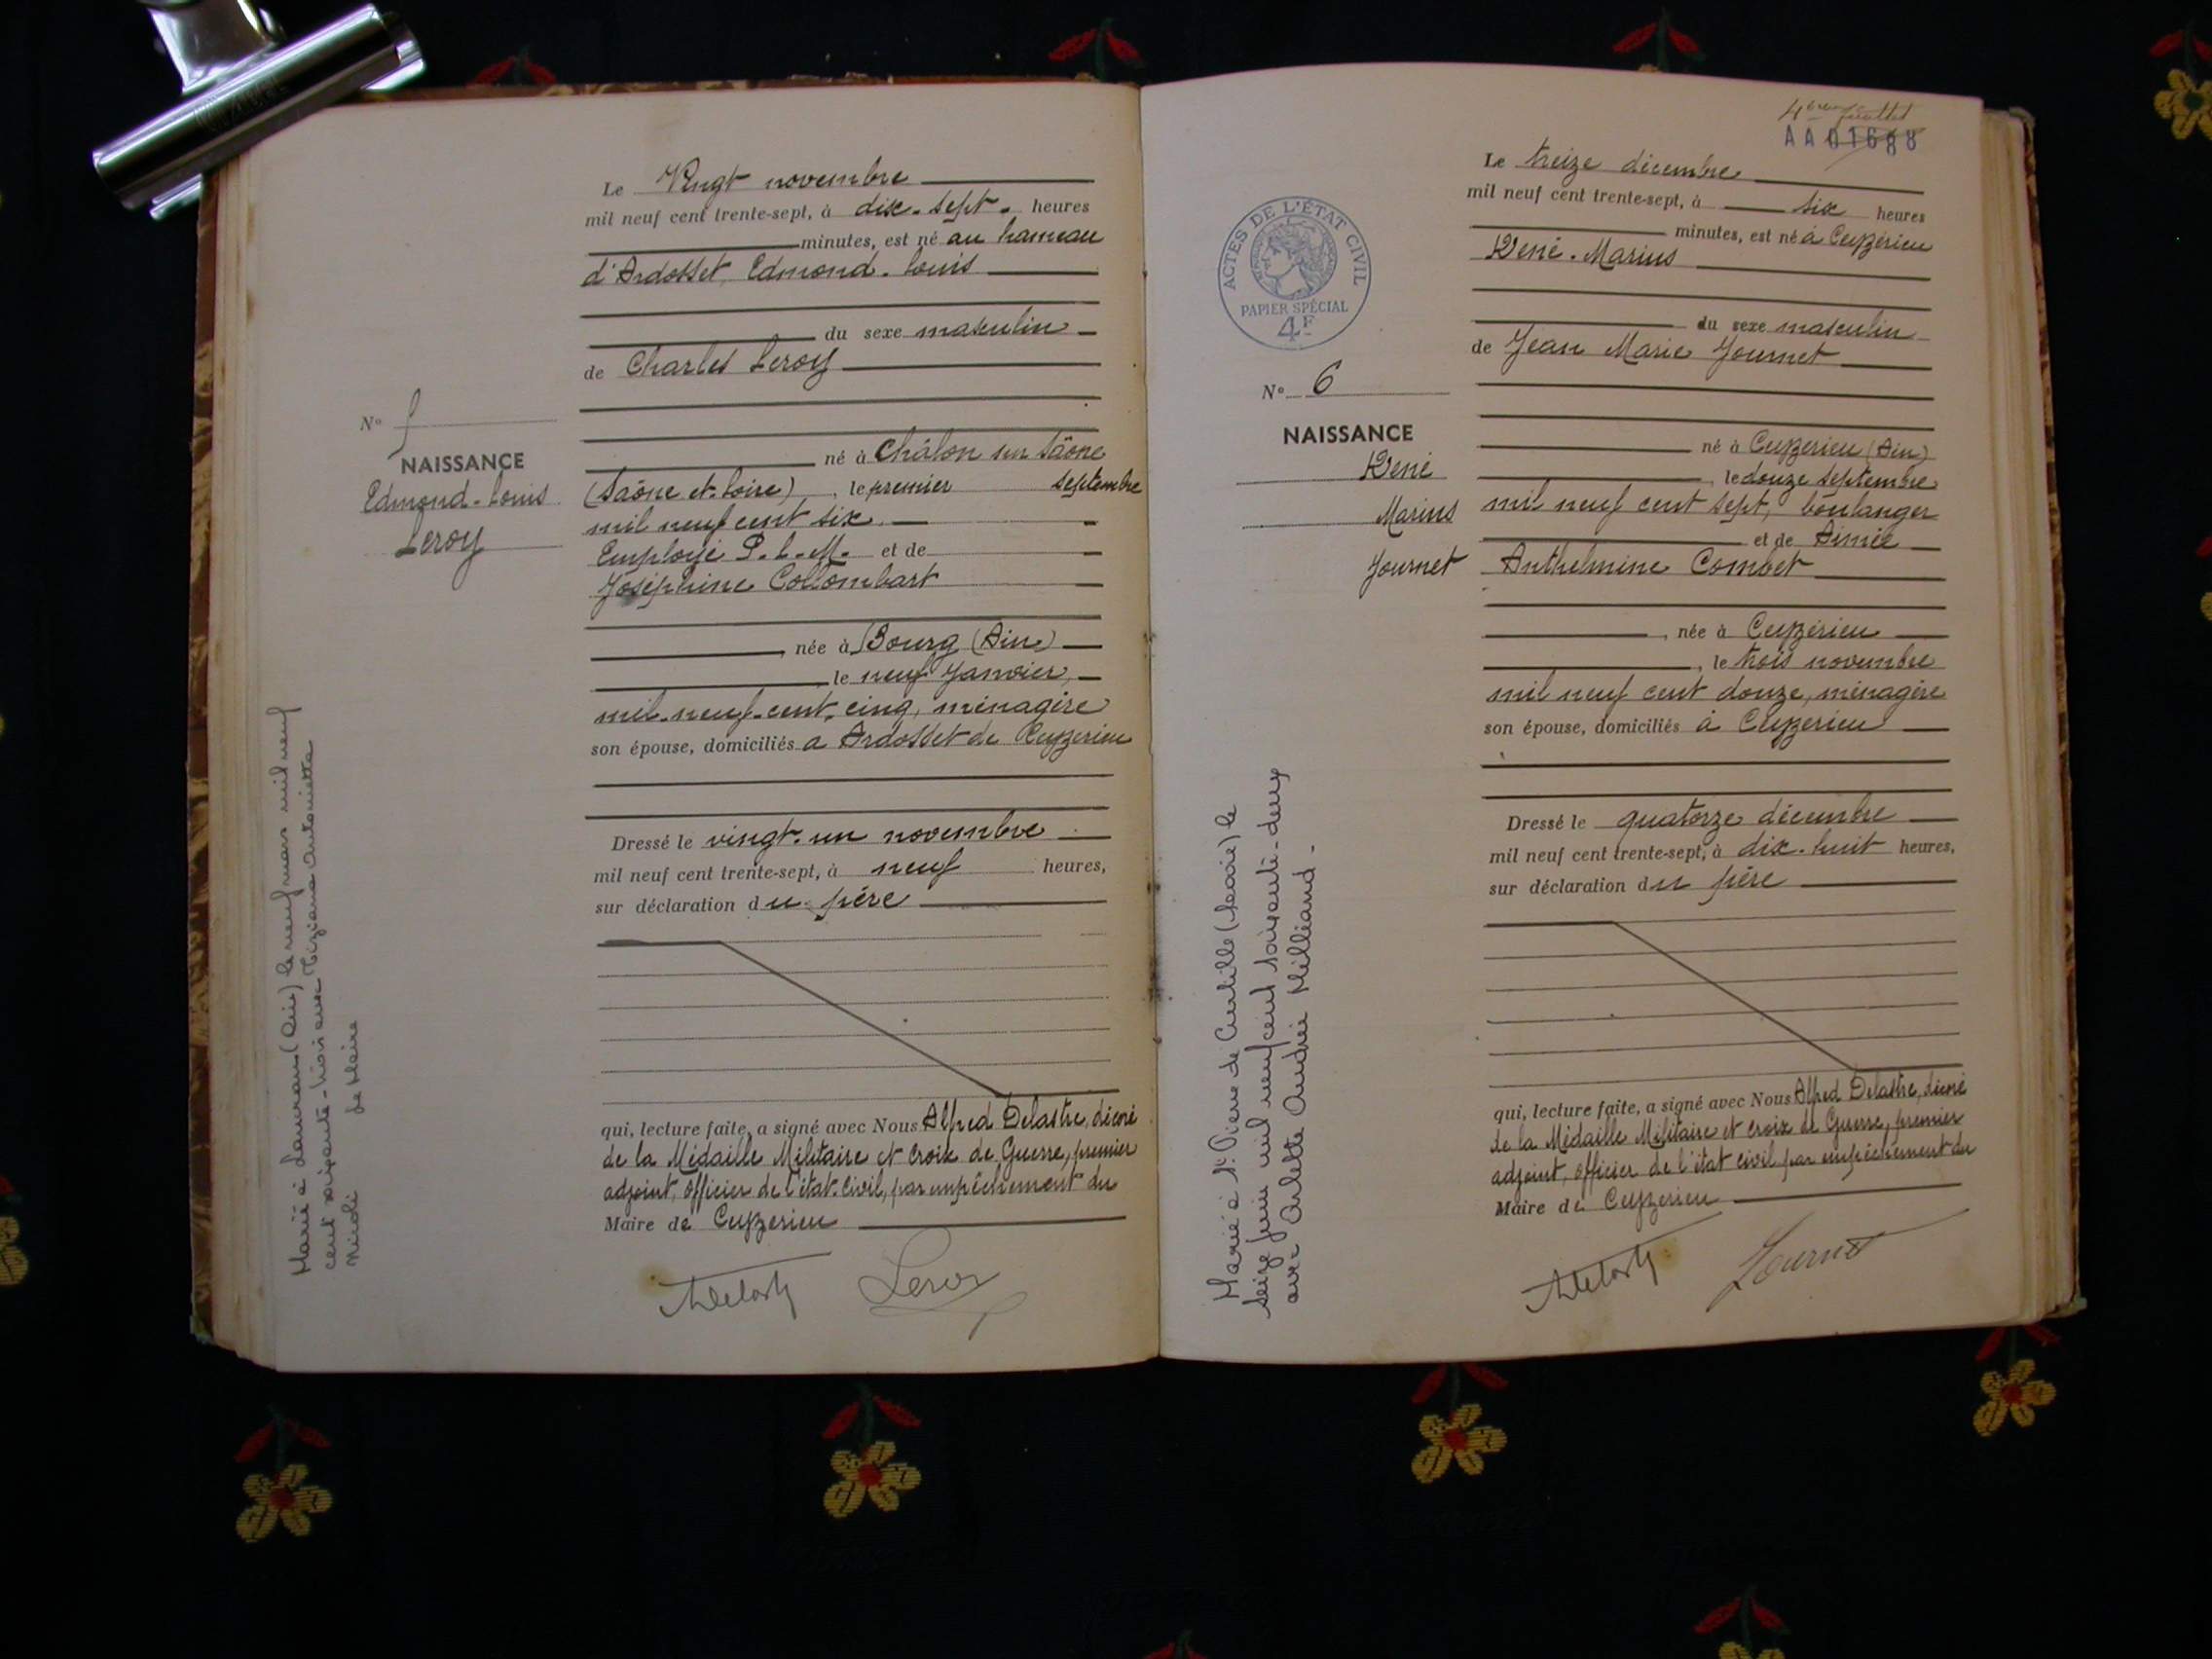 Le Vingt novembre
mil neuf cent trente-sept, à dix-sept heures
minutes, est né au hameau
d'Ardosset, Edmond-Louis
du sexe masculin
de Charles Leroy
né à Châlon sur Saône
(Saône et Loire), le premier septembre
mil neuf cent six
Employé P.L.M. et de
Joséphine Collombart
, née à Bourg (Ain)
, le neuf Janvier,
mil-neuf-cent-cinq, ménagère
son épouse, domiciliés a Ardosset de Cuzieu
Dressé le vingt-un novembre
mil neuf cent trente-sept, à neuf heures,
sur déclaration du père
qui, lecture faite, a signé avec Nous Alfred Delastre, décoré
de la Médaille Militaire et Croix de Guerre, premier
adjoint, officier de l'état-civil, par empêchement du
Maire de Ceyzerieu
Leroy
N°
NAISSANCE
Edmond-Louis
Leroy
Marié à (Ain) le neuf mars mil neuf
cent soixante-trois avec Antonietta
Nicoli Le Maire
AA 01688
Le treize décembre
mil neuf cent trente-sept, à six heures
minutes, est né à Ceyzérieu
René-Marius
du sexe masculin
de Jean Marie Journet
né à Ceyzerieu (Ain)
, le douze septembre
mil neuf cent sept, boulanger
et de Aimée
Anthelmine Combet
, née à Ceyzérieu
, le trois novembre
mil neuf cent douze, ménagère
son épouse, domiciliés à Ceyzerieu
Dressé le quatorze décembre
mil neuf cent trente-sept, à dix-huit heures,
sur déclaration du père
qui, lecture faite, a signé avec Nous Alfred Delastre, décoré
de la Médaille Militaire et croix de Guerre, premier
adjoint, officier de l'état civil par empêchement du
Maire de Ceyzerieu
Journet
ACTES DE L'ÉTAT CIVIL
PAPIER SPÉCIAL
4F
N° 6
NAISSANCE
René
Marius
Journet
Marié à St Pierre de Curtille (Savoie) le
seize juin mil neuf cent soixante-deux
avec Arlette Andrée Milliand -